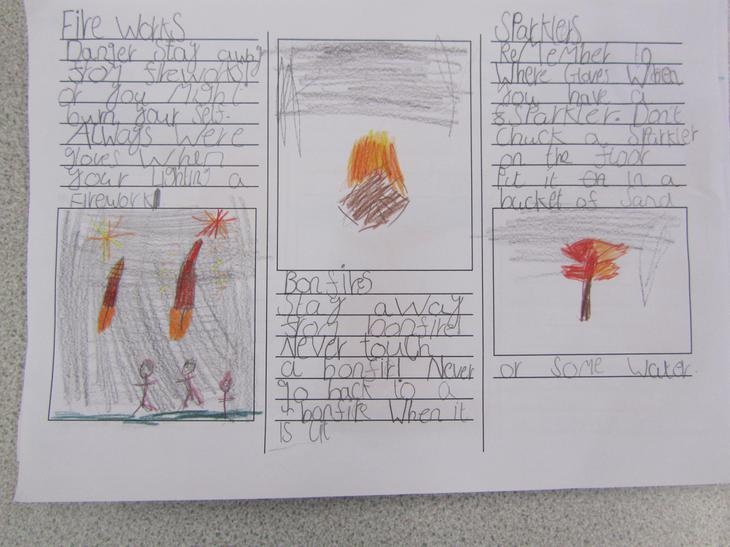 Fire Works
Danger Stay away
from fireworks!
or you Might
burn your self.
Always Were
gloves When
your Lighting a
Firework
Bonfires
Stay away
from bonfire!
Never touch
a bonfire! Never
go back to a
bonfire When it
is lit
Sparklers
ReMeMber to
Where Gloves When
you have a
Sparkler. Don't
Chuck a Sparkler
on the floor
Put it in a
bucket of Sand
or Some Water.